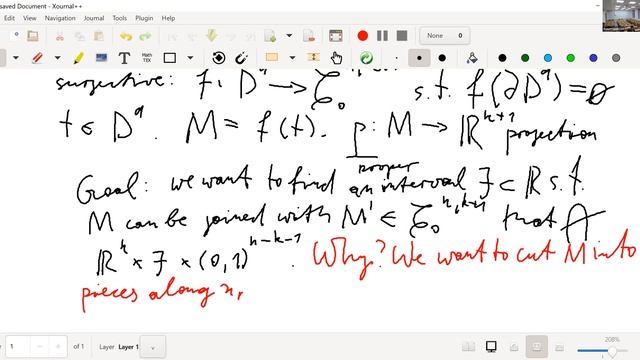 saved Document - Xournal++
View Navigation Journal Tools Plugin Help
None 0
surjective: f: D^q → ℰ_0 s.t. f(∂D^q) = ∅
t ∈ D^q. M = f(t). p: M → ℝ^{k+1} projection
proper
Goal: we want to find an interval J ⊂ ℝ s.t.
M can be joined with M' ∈ ℰ_0^{n,k+1} that ⋔
ℝ^k × J × (0,1)^{n-k-1}. Why? We want to cut M into
pieces along x,
1 of 1 Layer Layer 1 208%